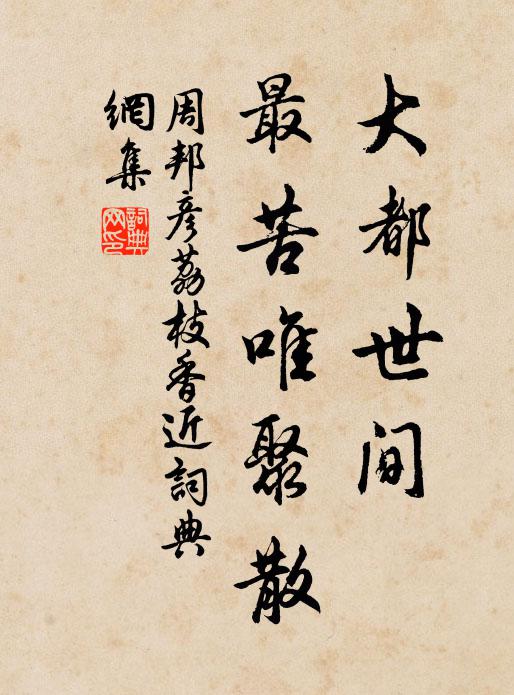 大都世间
最苦唯聚散
周邦彦荔枝香近詞典
網集
詞典网印